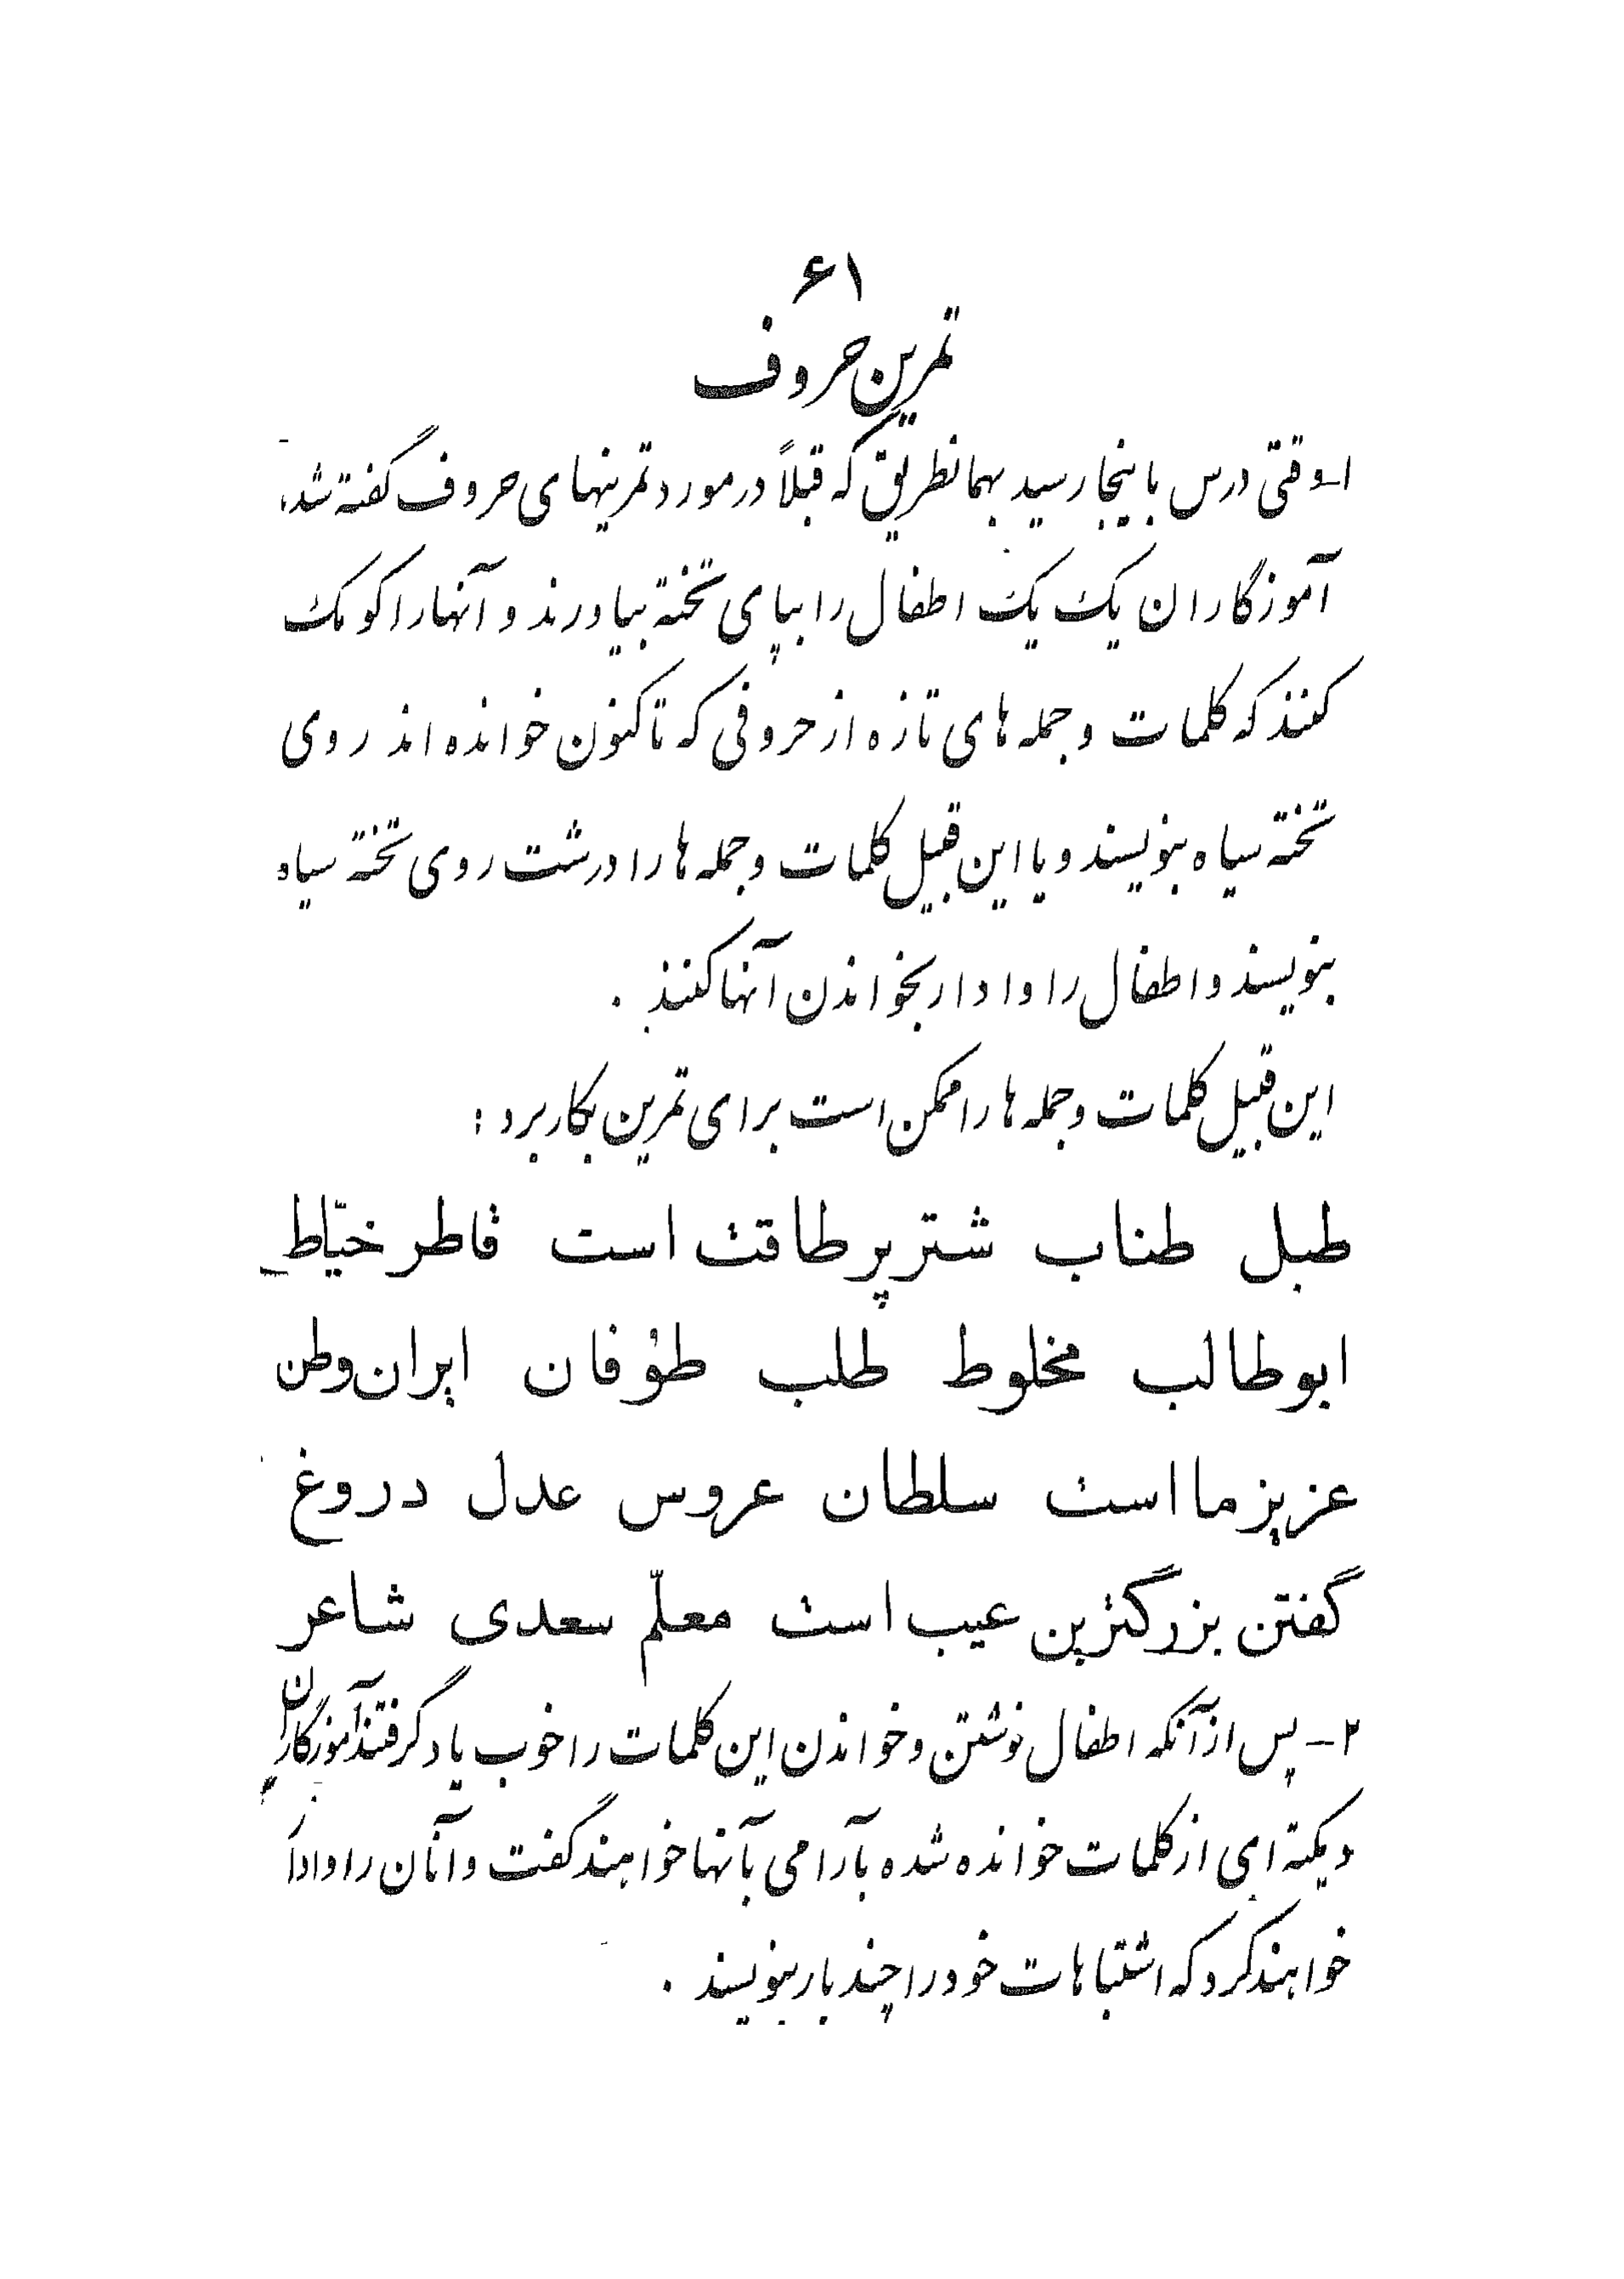 ۶۱
تمرین حروف
۱- وقتی درس باینجا رسید بهمانطریق که قبلاً در مورد تمرینهای حروف گفته شد،
آموزگاران یک یک اطفال را بپای تخته بیاورند و آنها را کومک
کنند که کلمات و جمله های تازه از حروفی که تاکنون خوانده اند روی
تخته سیاه بنویسند و یا این قبیل کلمات و جمله ها را درشت روی تخته سیاه
بنویسند و اطفال را وادار بخواندن آنها کنند .
این قبیل کلمات و جمله ها را ممکن است برای تمرین بکار برد :
طبل طناب شتر پر طاقت است قاطر خیّاط
ابوطالب مخلوط طلب طوفان ایران وطن
عزیز ما است سلطان عروس عدل دروغ
گفتن بزرگترین عیب است معلّم سعدی شاعر
۲- پس از آنکه اطفال نوشتن و خواندن این کلمات را خوب یاد گرفتند آموزگاران
دیکته ای از کلمات خوانده شده بآرامی بآنها خواهند گفت و آنان را وادار
خواهند کرد که اشتباهات خود را چند بار بنویسند .